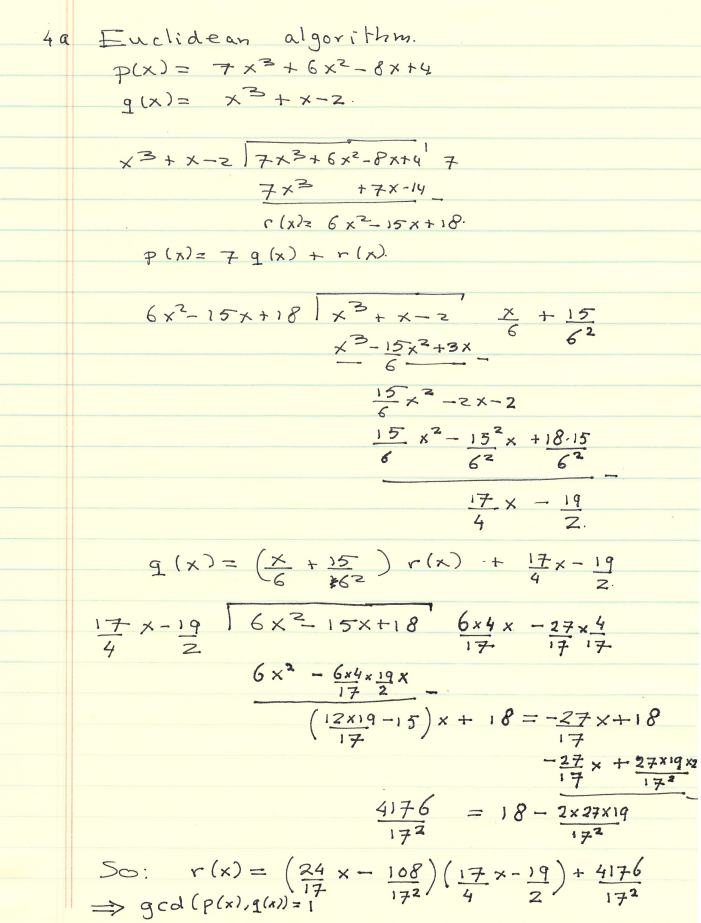 4a Euclidean algorithm.
p(x) = 7x³ + 6x² - 8x + 4
q(x) = x³ + x - 2.
x³ + x - 2 | 7x³ + 6x² - 8x + 4 | 7
7x³ + 7x - 14 -
r(x) = 6x² - 15x + 18.
p(x) = 7 q(x) + r(x).
6x² - 15x + 18 | x³ + x - 2 | x/6 + 15/6²
x³ - 15/6 x² + 3x -
15/6 x² - 2x - 2
15/6 x² - 15²/6² x + 18·15/6² -
17/4 x - 19/2.
q(x) = (x/6 + 15/6²) r(x) + 17/4 x - 19/2.
17/4 x - 19/2 | 6x² - 15x + 18 | 6×4/17 x - 27/17 × 4/17
6x² - 6×4/17 × 19/2 x -
(12×19/17 - 15) x + 18 = -27/17 x + 18
-27/17 x + 27×19×2/17² -
4176/17² = 18 - 2×27×19/17²
So: r(x) = (24/17 x - 108/17²)(17/4 x - 19/2) + 4176/17²
⇒ gcd(p(x), q(x)) = 1